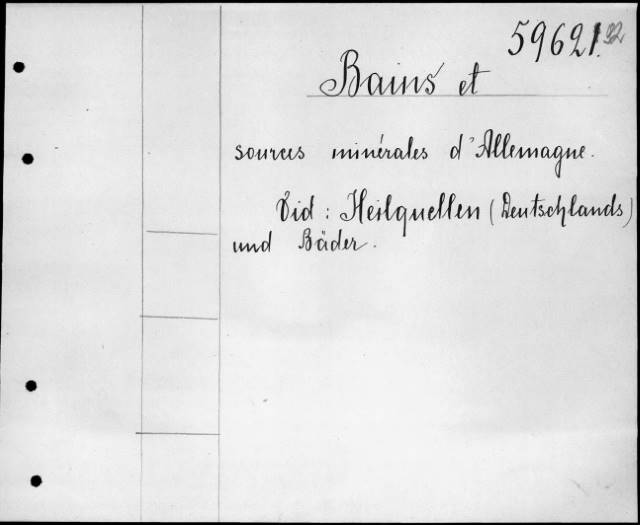 59621.92
Bains et
sources minérales d'Allemagne.
Vid: Heilquellen (Deutschlands)
und Bäder.